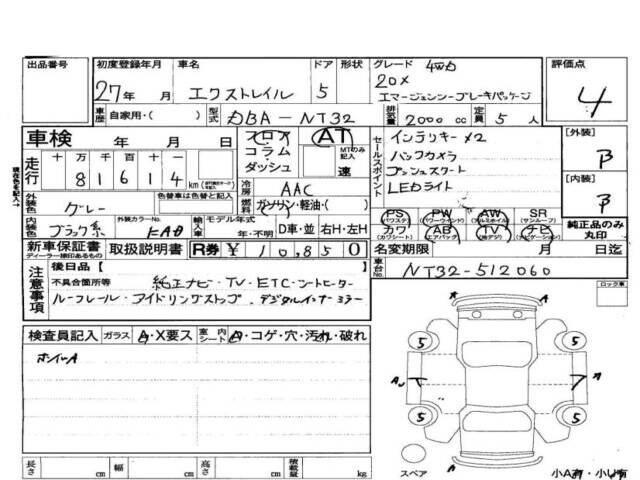 出品番号 初度登録年月 車名 ドア 形状 グレード 4WD 評価点
27年 月 エクストレイル 5 20X
エマージェンシーブレーキパッケージ 4
車歴 自家用・( ) 型式 DBA-NT32 排気量 2000 cc 定員 5人
車検 年 月 日 フロア コラム ダッシュ AT MTのみ記入 速
セールスポイント インテリキー×2 [外装] B
バックカメラ
プッシュスタート [内装] B
LEDライト
走行 十 万 千 百 十 一
81614 km
冷房 AAC
外装色 グレー 色替車は色替と記入 燃料 ガソリン・軽油・( )
PS PW AW SR
(パワステ) (パワーウインド) (アルミホイル) (サンルーフ)
カワ AB TV ナビ 純正品のみ丸印
(カワシート) (エアバック) (地デジ) (ナビゲーション)
内装色 ブラック系 外装カラーNo. KAD 輸入車 モデル年式 年・不明 D車・並 右H・左H
新車保証書 取扱説明書 R券 ¥ 10,850 名変期限 月 日迄
ディーラー捺印あるもの
車台No. NT32-512060
注意事項 後日品【
不具合箇所等 純正ナビ・TV・ETC・シートヒーター
ルーフレール・アイドリングストップ・デジタルインナーミラー
ロック車
検査員記入 ガラス A・X要ス 室内シート A・コゲ・穴・汚れ・破れ
ホイルA
A
5 5
A
5 5
スペア
長さ cm 幅 cm 高さ cm 積載量 kg 小A有・小U有